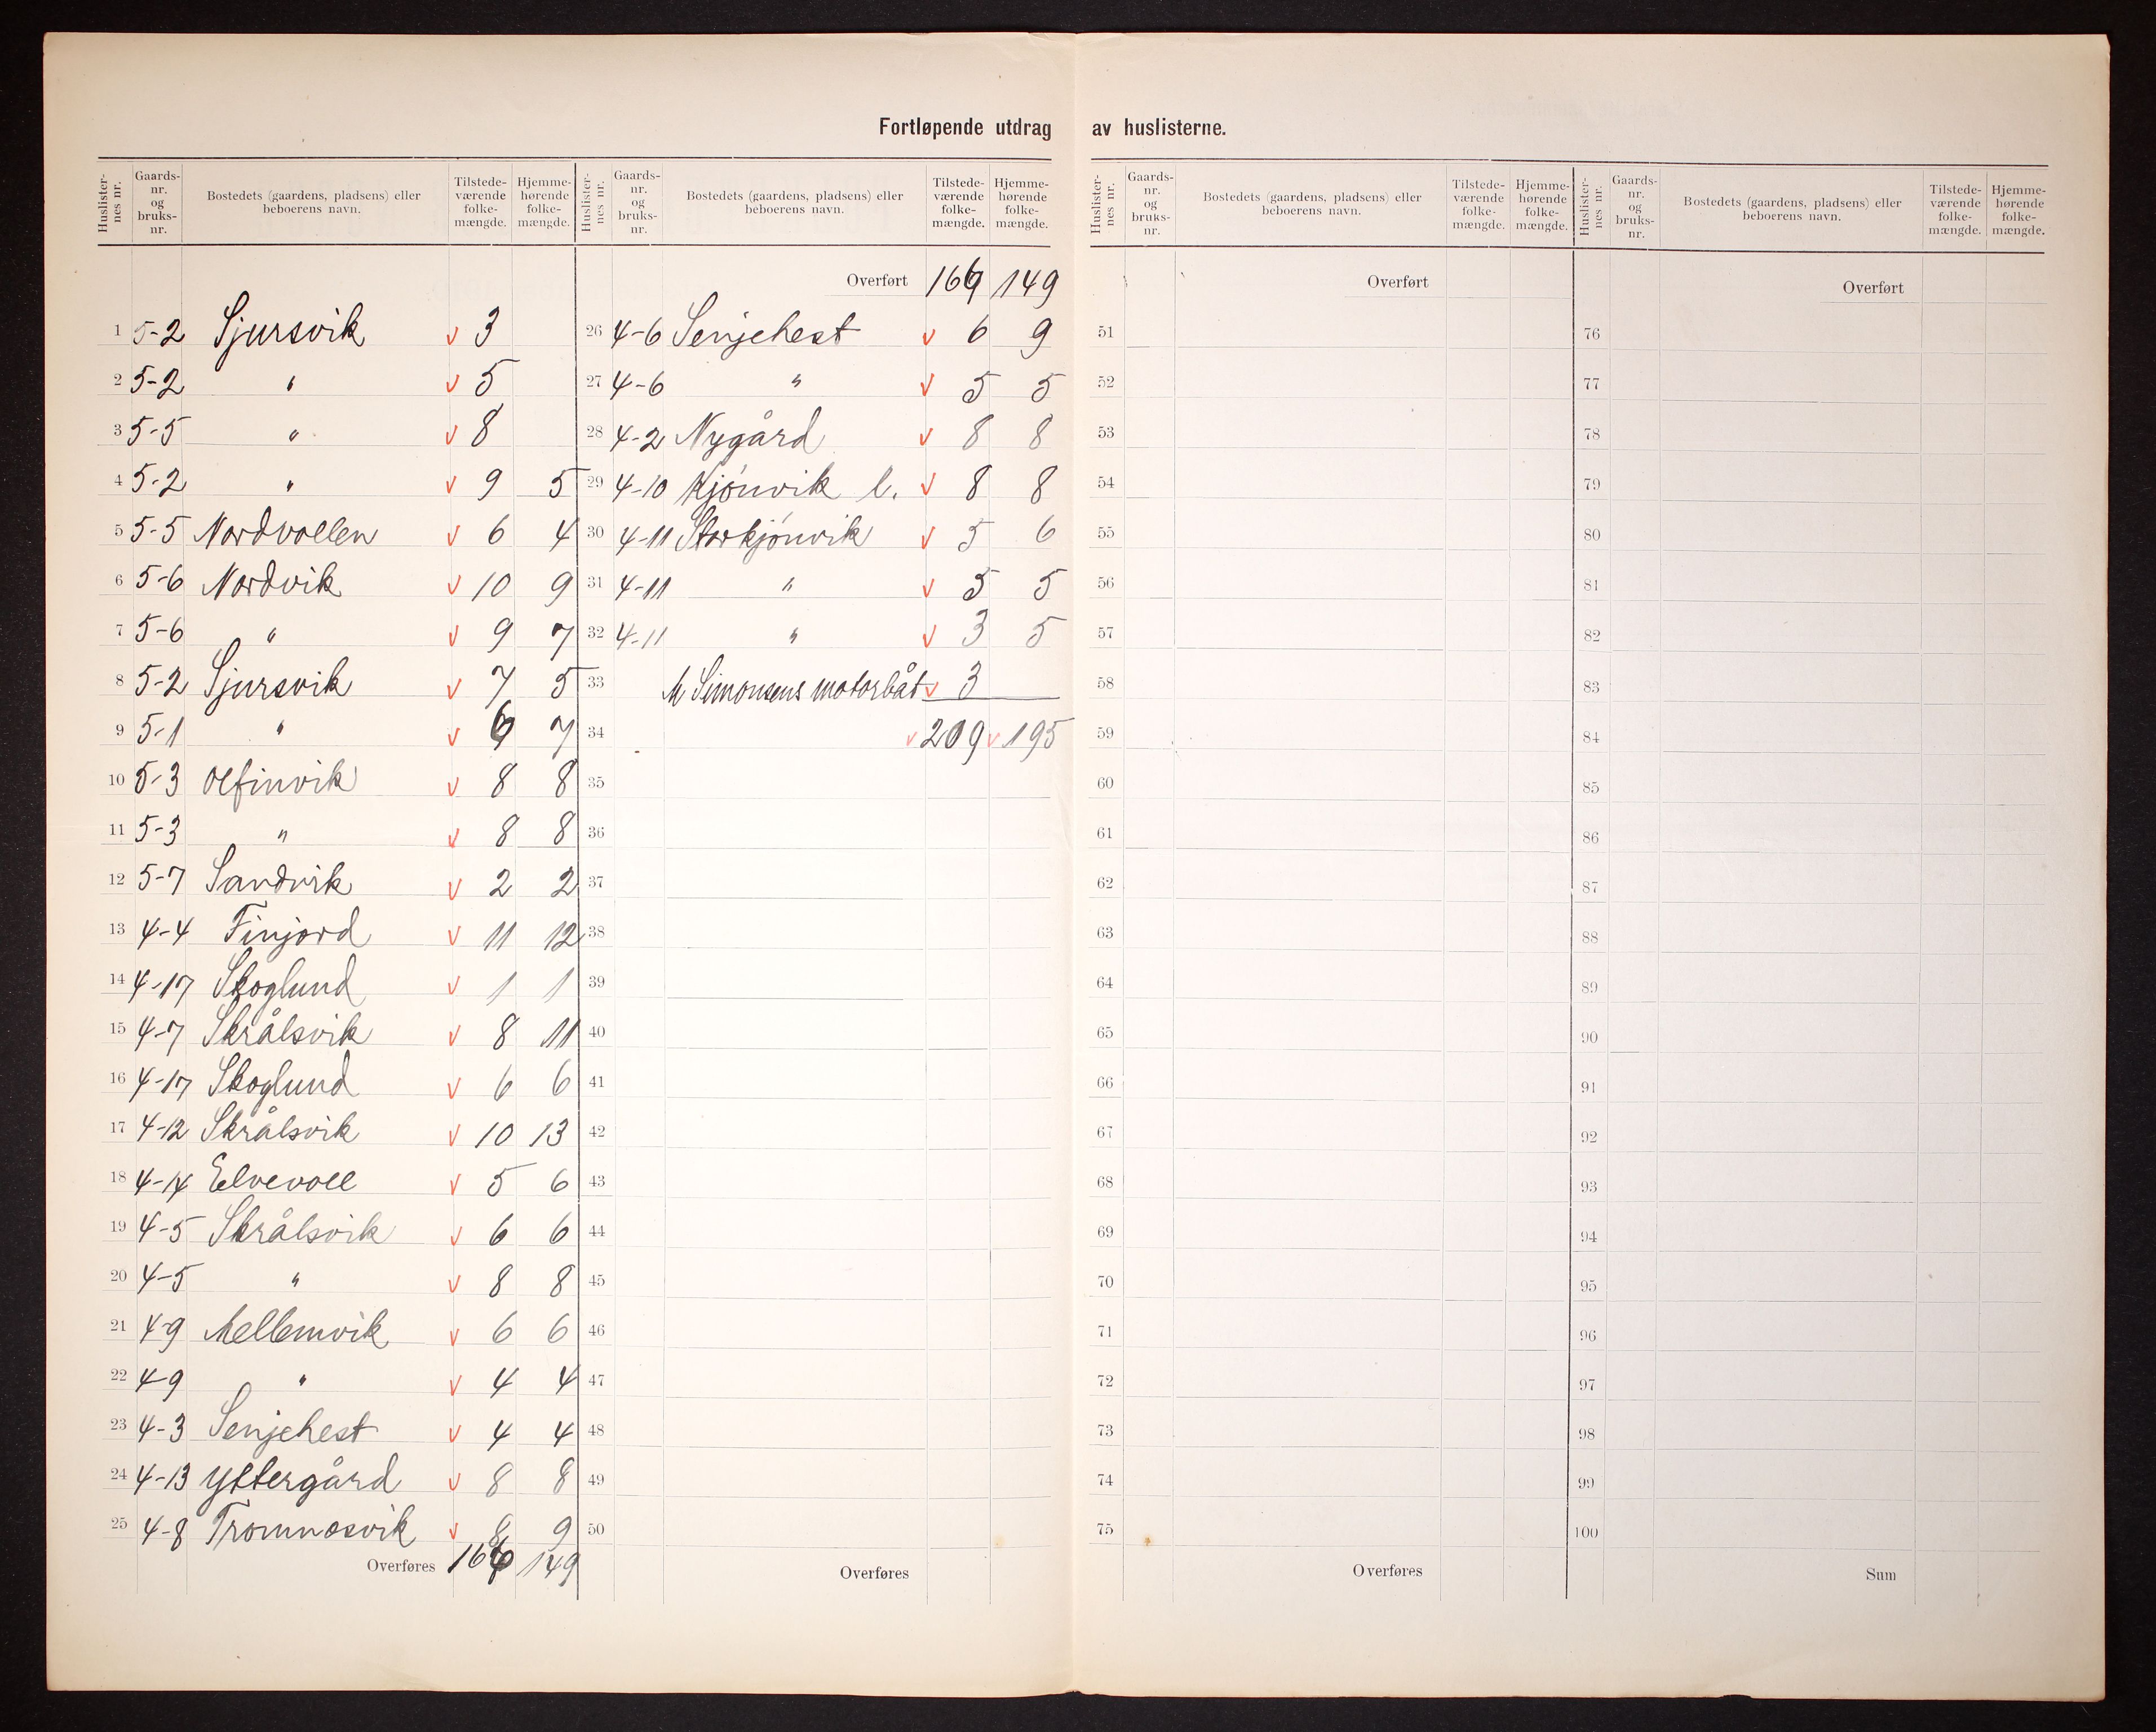 Fortløpende utdrag av huslisterne.
Huslister-nes nr. Gaards-nr. og bruks-nr. Bostedets (gaardens, pladsens) eller beboerens navn. Tilstede-værende folke-mængde. Hjemme-hørende folke-mængde.
1 5-2 Sjursvik v 3
2 5-2 " v 5
3 5-5 " v 8
4 5-2 " v 9 5
5 5-5 Nordvollen v 6 4
6 5-6 Nordvik v 10 9
7 5-6 " v 9 7
8 5-2 Sjursvik v 7 5
9 5-1 " v 7
10 5-3 Olfinvik v 8 8
11 5-3 " v 8 8
12 5-7 Sandvik v 2 2
13 4-4 Finjord v 11 12
14 4-17 Skoglund v 1 1
15 4-7 Skrålsvik v 8 11
16 4-17 Skoglund v 6 6
17 4-12 Skrålsvik v 10 13
18 4-14 Elvevoll v 5 6
19 4-5 Skrålsvik v 6 6
20 4-5 " v 8 8
21 4-9 Mellemvik v 6 6
22 4-9 " v 4 4
23 4-3 Senjehest v 4 4
24 4-13 Yttergård v 8 8
25 4-8 Tromnesvik v 8 9
Overføres 166 149
Huslister-nes nr. Gaards-nr. og bruks-nr. Bostedets (gaardens, pladsens) eller beboerens navn. Tilstede-værende folke-mængde. Hjemme-hørende folke-mængde.
Overført 166 149
26 4-6 Senjehest v 6 9
27 4-6 " v 5 5
28 4-2 Nygård v 8 8
29 4-10 Kjönvik l. v 8 8
30 4-11 Storkjönvik v 5 6
31 4-11 " v 5 5
32 4-11 " v 3 5
33 M Simonsens motorbåt v 3
34 v 209 v 195
35
36
37
38
39
40
41
42
43
44
45
46
47
48
49
50
Overføres
Huslister-nes nr. Gaards-nr. og bruks-nr. Bostedets (gaardens, pladsens) eller beboerens navn. Tilstede-værende folke-mængde. Hjemme-hørende folke-mængde.
Overført
51
52
53
54
55
56
57
58
59
60
61
62
63
64
65
66
67
68
69
70
71
72
73
74
75
Overføres
Huslister-nes nr. Gaards-nr. og bruks-nr. Bostedets (gaardens, pladsens) eller beboerens navn. Tilstede-værende folke-mængde. Hjemme-hørende folke-mængde.
Overført
76
77
78
79
80
81
82
83
84
85
86
87
88
89
90
91
92
93
94
95
96
97
98
99
100
Sum